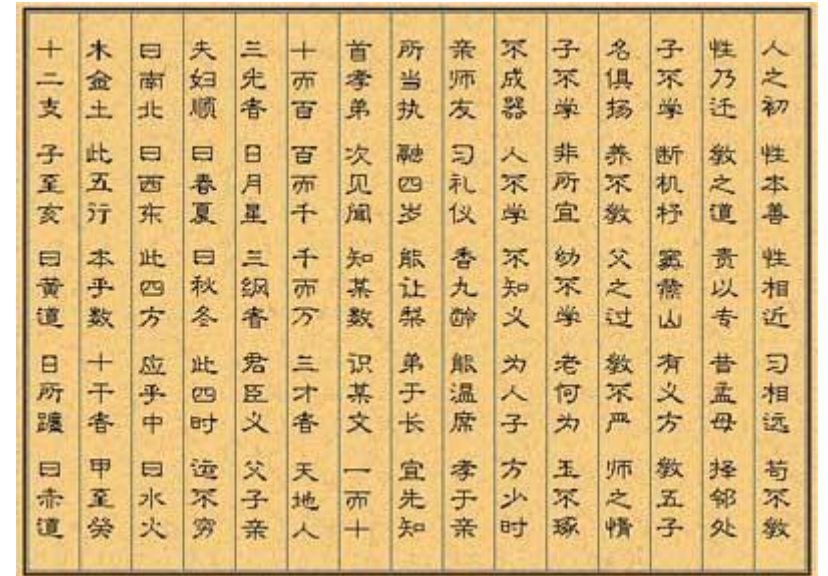 人之初 性本善 性相近 习相远 苟不教
性乃迁 教之道 贵以专 昔孟母 择邻处
子不学 断机杼 窦燕山 有义方 教五子
名俱扬 养不教 父之过 教不严 师之惰
子不学 非所宜 幼不学 老何为 玉不琢
不成器 人不学 不知义 为人子 方少时
亲师友 习礼仪 香九龄 能温席 孝于亲
所当执 融四岁 能让梨 弟于长 宜先知
首孝弟 次见闻 知某数 识某文 一而十
十而百 百而千 千而万 三才者 天地人
三光者 日月星 三纲者 君臣义 父子亲
夫妇顺 曰春夏 曰秋冬 此四时 运不穷
曰南北 曰西东 此四方 应乎中 曰水火
木金土 此五行 本乎数 十干者 甲至癸
十二支 子至亥 曰黄道 日所躔 曰赤道